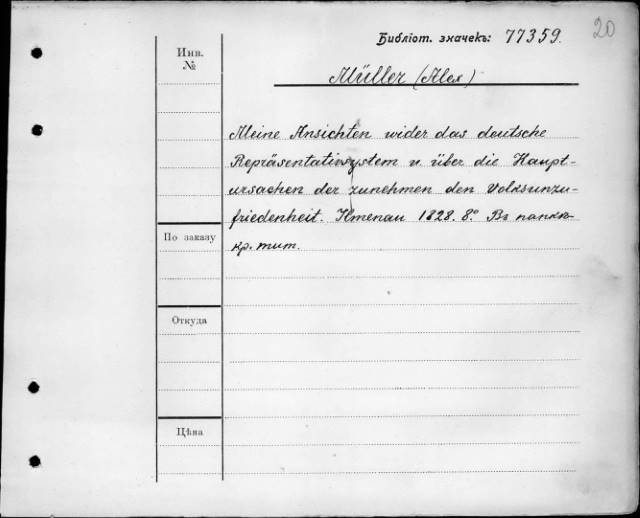 Библіот. значекъ: 77359.
20
Инв.
№
Müller (Alex)
Meine Ansichten wider das deutsche
Repräsentativsystem u über die Haupt-
ursachen der zunehmen den Volksunzu-
friedenheit. Ilmenau 1828. 8º. Въ папкѣ
кр. тит.
По заказу
Откуда
Цѣна